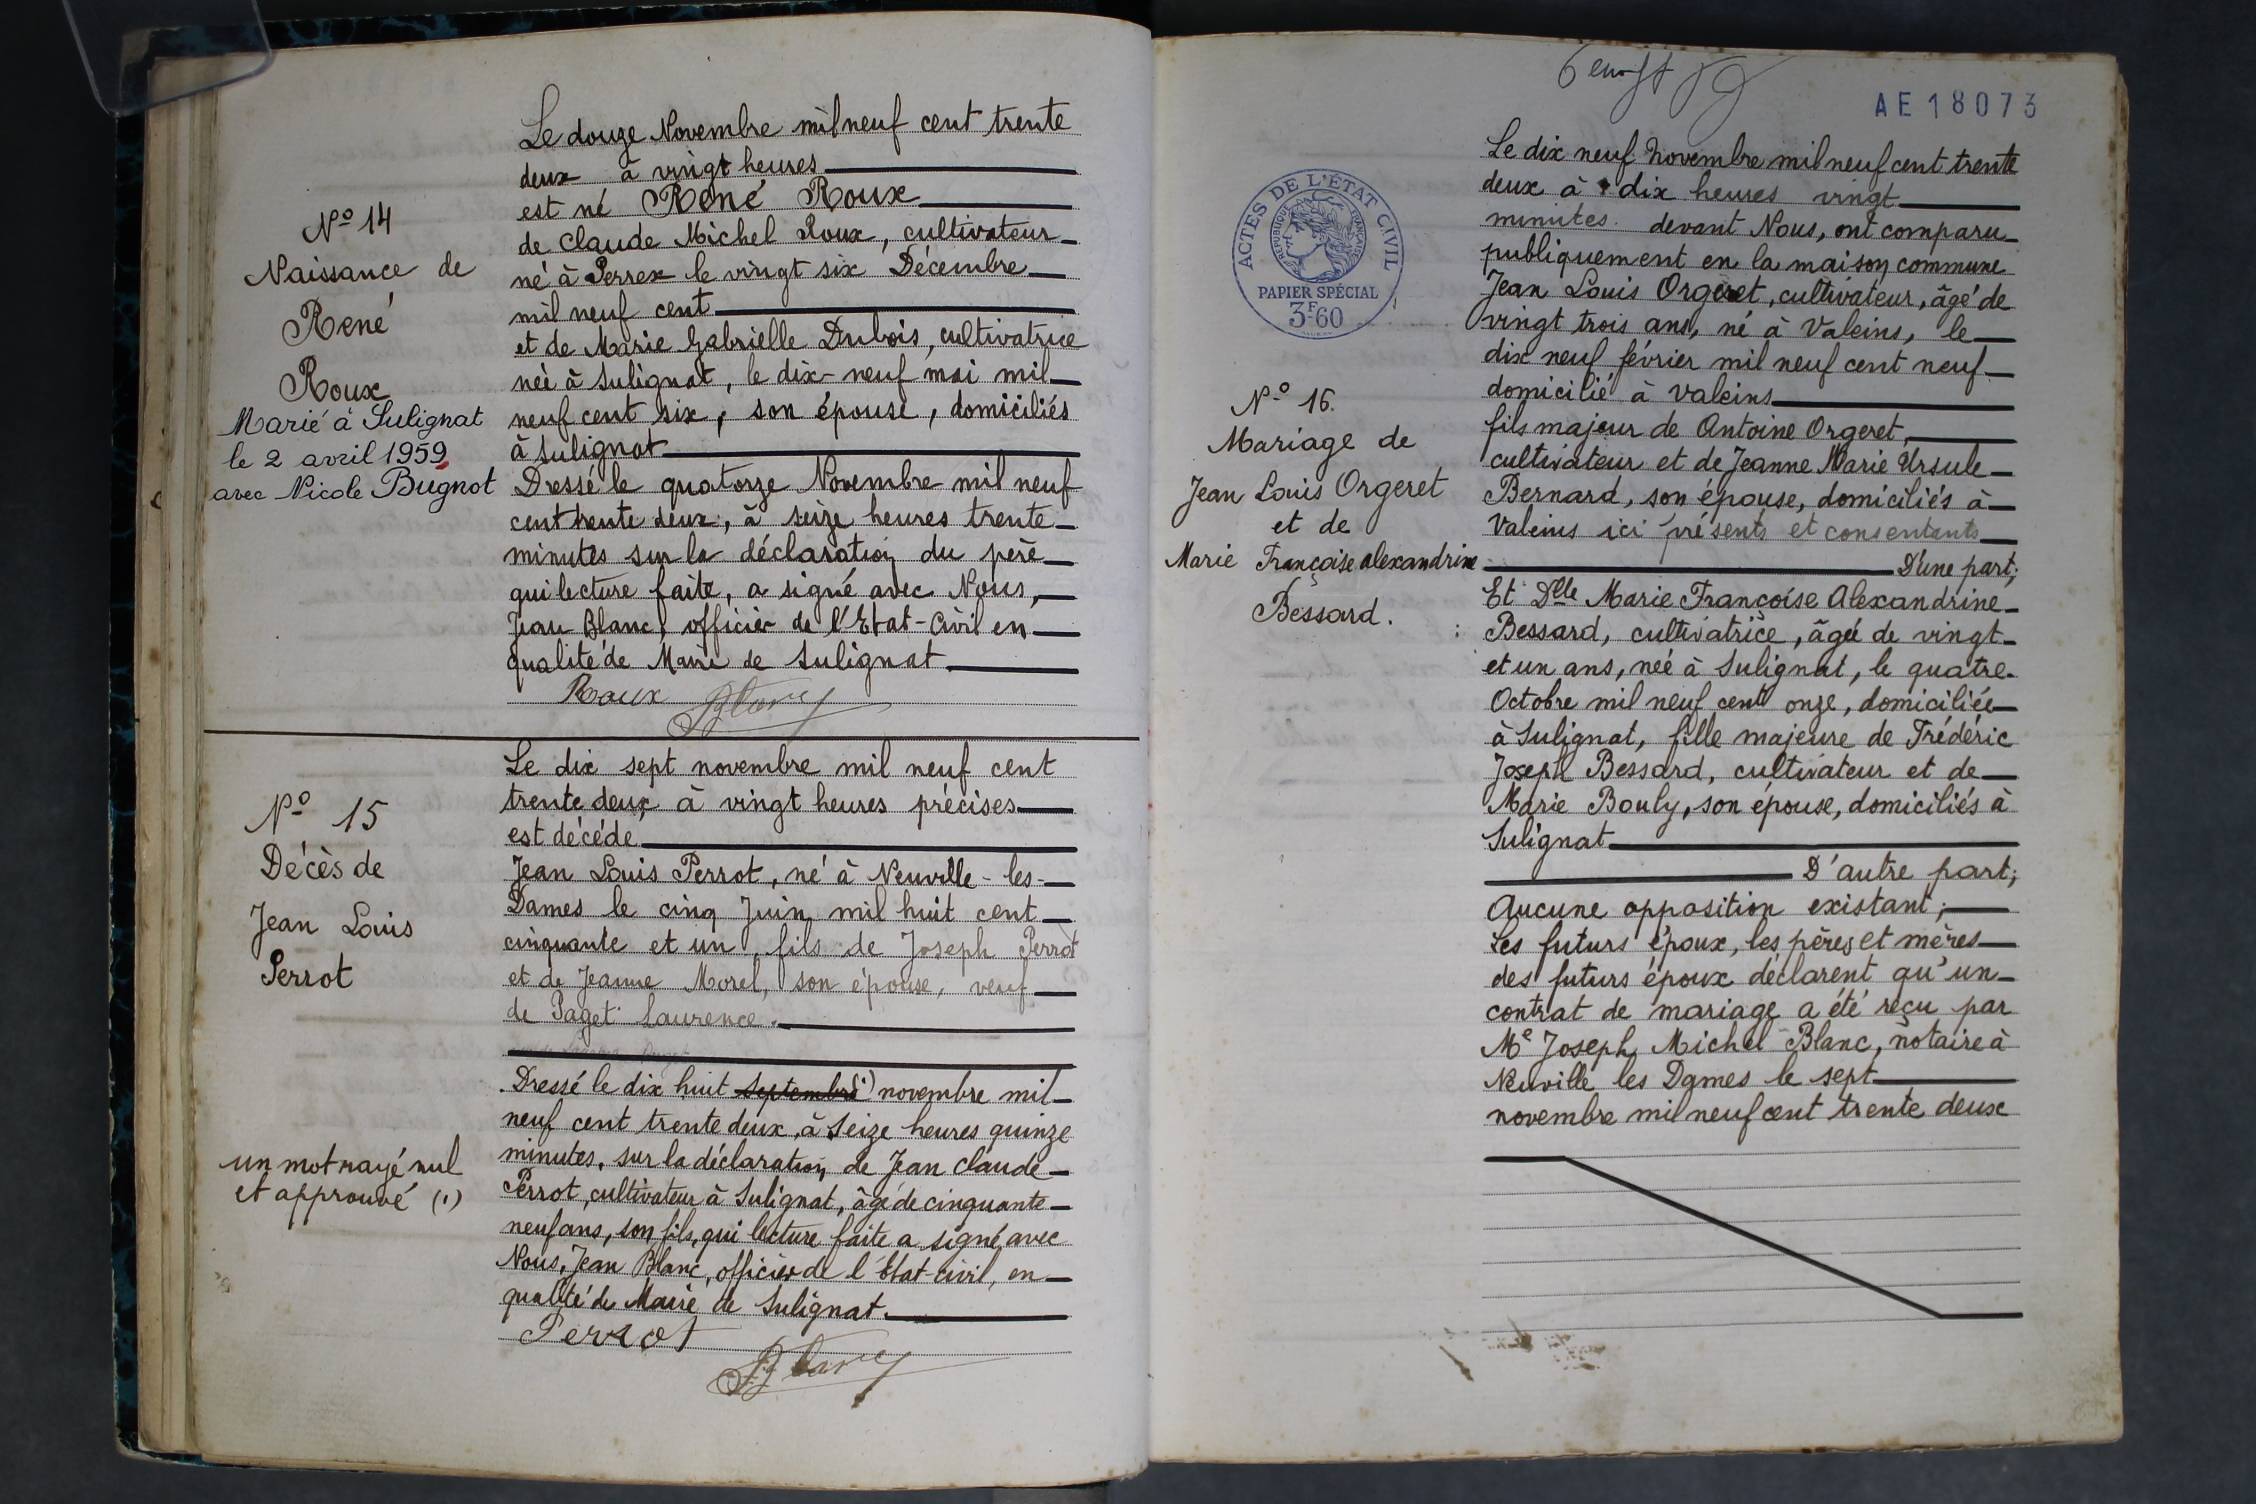 Le douze Novembre mil neuf cent trente
deux à vingt heures
est né René Roux
de Claude Michel Roux, cultivateur
né à Perrex le vingt six Décembre
mil neuf cent
et de Marie Gabrielle Dubois, cultivatrice
née à Sulignat, le dix-neuf mai mil
neuf cent six, son épouse, domiciliés
à Sulignat
Dressé le quatorze Novembre mil neuf
cent trente deux, à seize heures trente
minutes sur la déclaration du père
qui lecture faite, a signé avec Nous,
Jean Blanc, officier de l'Etat-Civil en
qualité de Maire de Sulignat
Roux Blanc
No 14
Naissance de
René
Roux
Marié à Sulignat
le 2 avril 1959
avec Nicole Bugnot
Le dix sept novembre mil neuf cent
trente deux, à vingt heures précises
est décédé
Jean Louis Perrot, né à Neuville-les-
Dames le cinq Juin mil huit cent
cinquante et un, fils de Joseph Perrot
et de Jeanne Morel, son épouse, veuf
de Paget Laurence.
Dressé le dix huit septembre (1) novembre mil
neuf cent trente deux, à seize heures quinze
minutes, sur la déclaration de Jean Claude
Perrot, cultivateur à Sulignat, âgé de cinquante
neuf ans, son fils, qui lecture faite a signé avec
Nous, Jean Blanc, officier de l'Etat-civil, en
qualité de Maire de Sulignat.
Perrot
Blanc
No 15
Décès de
Jean Louis
Perrot
un mot rayé nul
et approuvé (1)
AE 18073
ACTES DE L'ÉTAT CIVIL
RÉPUBLIQUE FRANÇAISE
PAPIER SPÉCIAL
3F60
No 16.
Mariage de
Jean Louis Orgeret
et de
Marie Françoise Alexandrine
Bessard.
Le dix neuf Novembre mil neuf cent trente
deux à dix heures vingt
minutes devant Nous, ont comparu
publiquement en la maison commune
Jean Louis Orgeret, cultivateur, âgé de
vingt trois ans, né à Valeins, le
dix neuf février mil neuf cent neuf
domicilié à Valeins
fils majeur de Antoine Orgeret,
cultivateur et de Jeanne Marie Ursule
Bernard, son épouse, domiciliés à
Valeins ici présents et consentants
D'une part;
Et Delle Marie Françoise Alexandrine
Bessard, cultivatrice, âgée de vingt
et un ans, née à Sulignat, le quatre
Octobre mil neuf cent onze, domiciliée
à Sulignat, fille majeure de Frédéric
Joseph Bessard, cultivateur et de
Marie Bouly, son épouse, domiciliés à
Sulignat
D'autre part;
Aucune opposition existant;
Les futurs époux, les pères et mères
des futurs époux déclarent qu'un
contrat de mariage a été reçu par
Me Joseph Michel Blanc, notaire à
Neuville les Dames le sept
novembre mil neuf cent trente deux